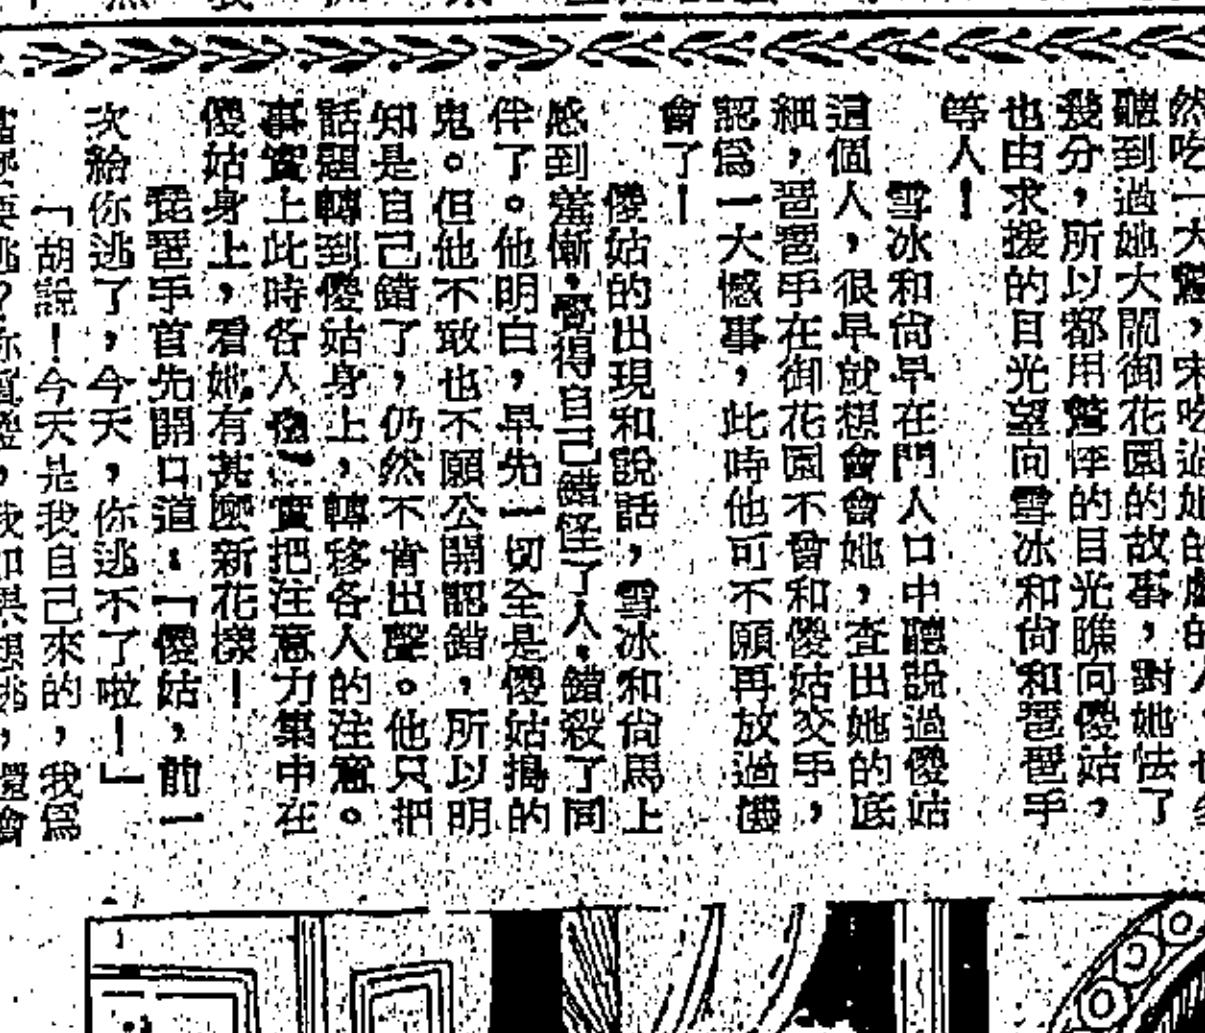 然吃一大驚，宋吃過她的虧的人，也多
聽到過她大鬧御花園的故事，對她怯了
幾分，所以都用驚怿的目光瞧向傻姑，
也由求援的目光望向雪冰和尙和琶琶手
等人！
雪冰和尙早在門人口中聽說過傻姑
這個人，很早就想會會她，查出她的底
細，琶琶手在御花園不曾和傻姑交手，
認爲一大憾事，此時他可不願再放過機
會了！
傻姑的出現和說話，雪冰和尙馬上
感到羞慚，覺得自己錯怪了人，錯殺了同
伴了。他明白，早先一切全是傻姑搗的
鬼。但他不敢也不願公開認錯，所以明
知是自己錯了，仍然不肯出聲。他只把
話題轉到傻姑身上，轉移各人的注意。
事實上此時各人實把注意力集中在
傻姑身上，看她有甚麼新花樣！
琵琶手首先開口道：「傻姑，前一
次給你逃了，今天，你逃不了啦！」
「胡說！今天是我自己來的，我爲
要逃？你眞傻，我如果想逃，還會